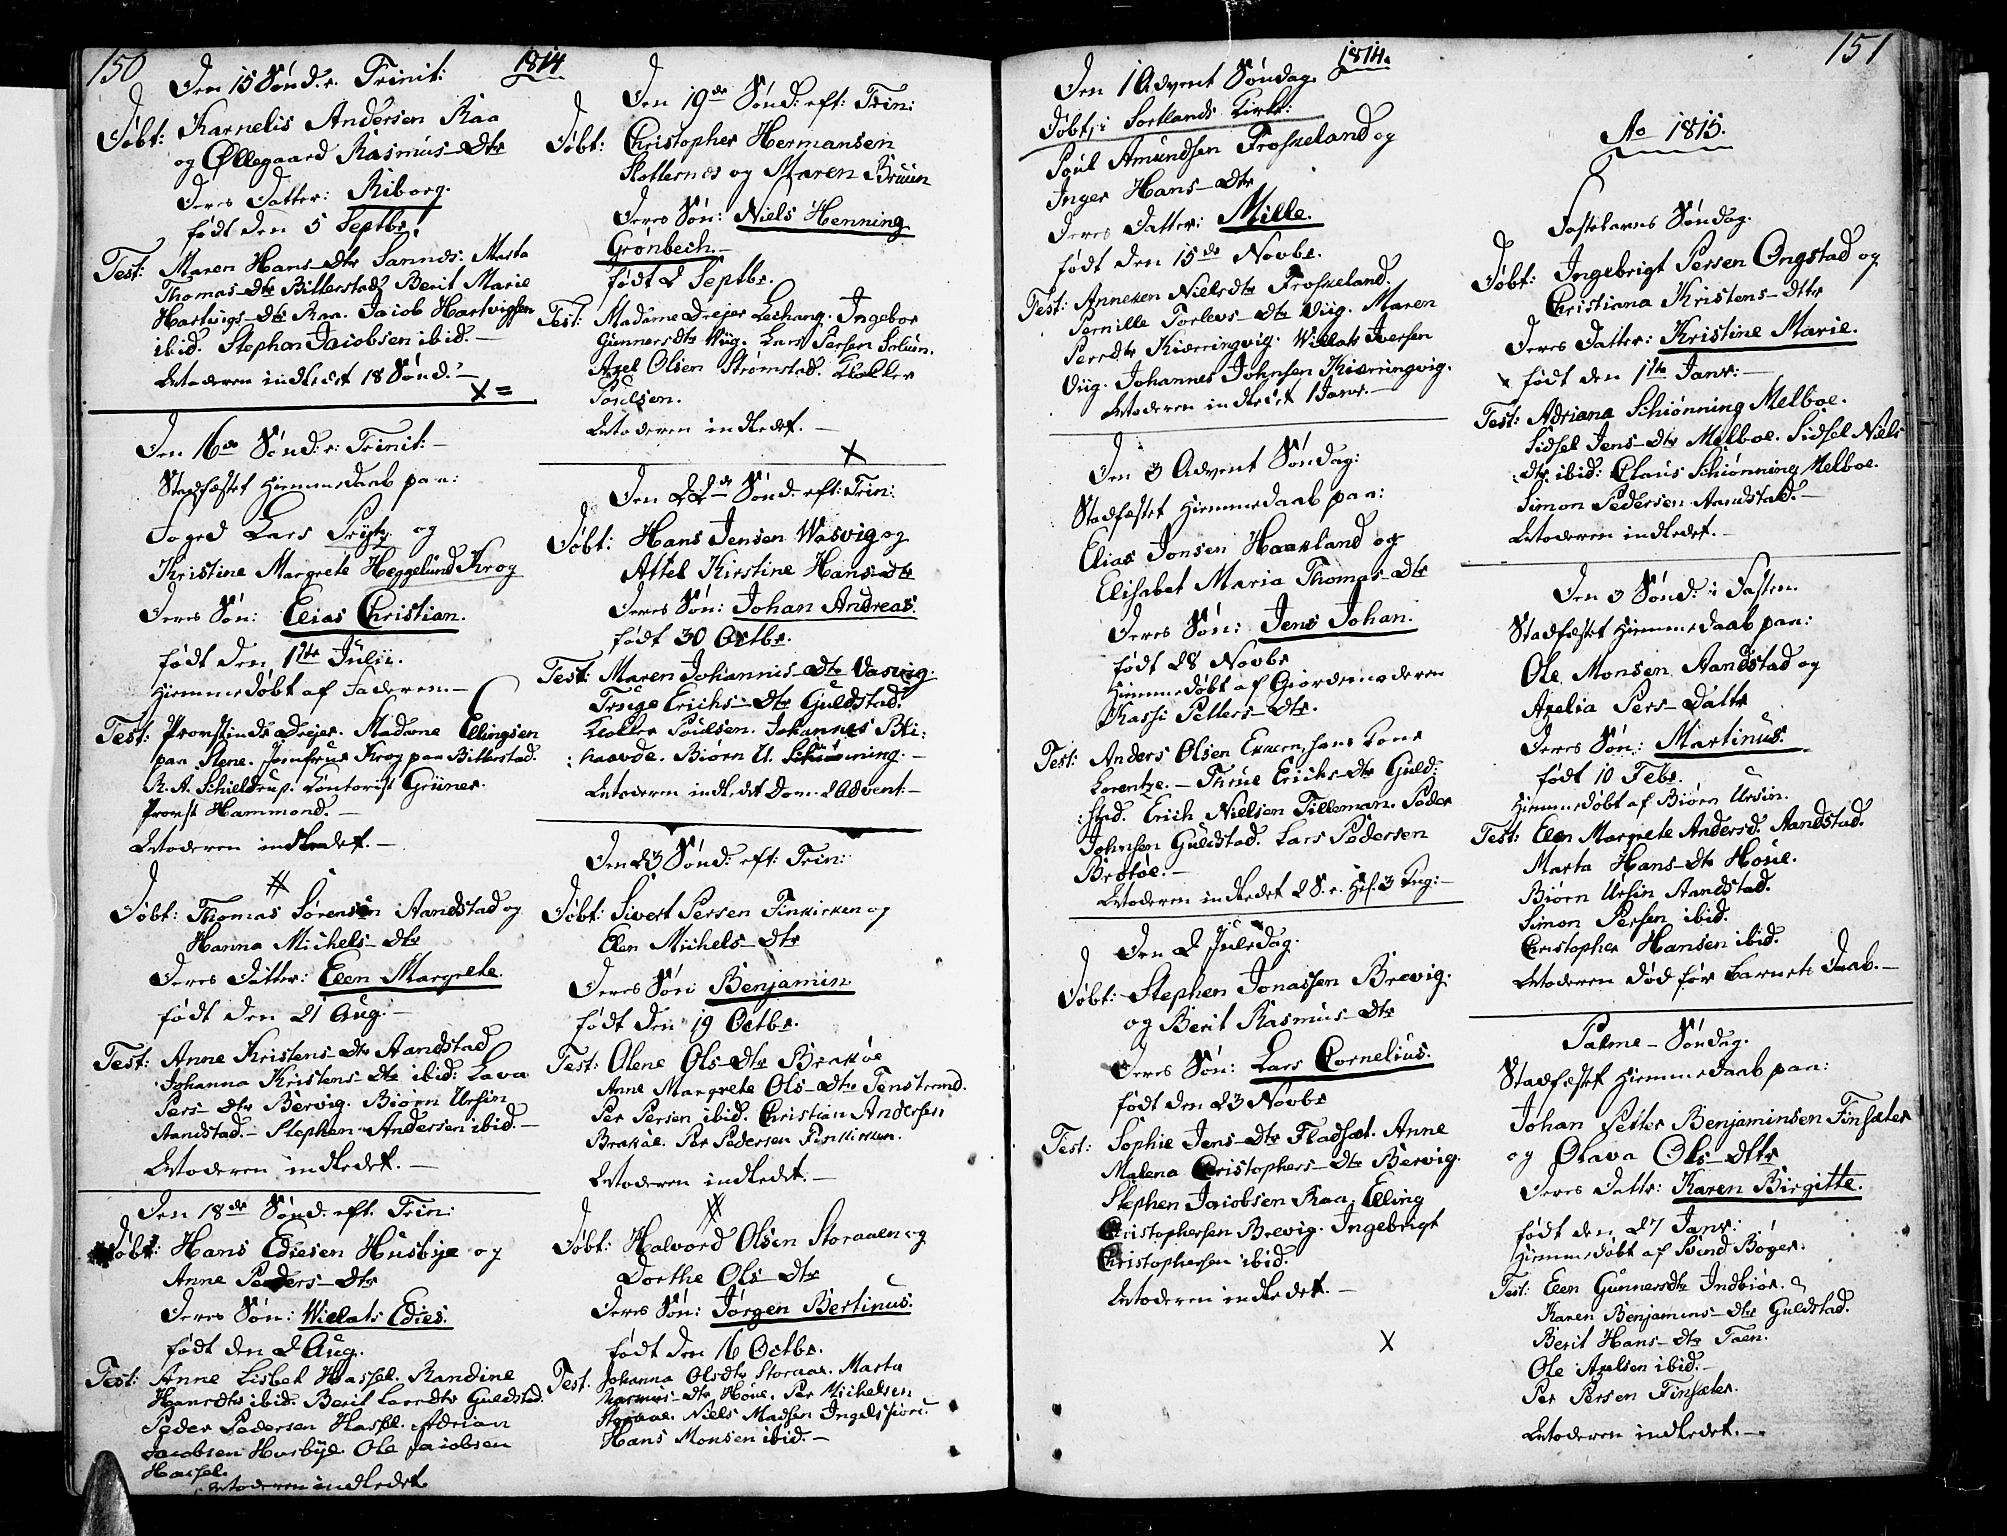 150
1814
Den 15 Sønd. e. Trinit:
Døbt: Karnelis Andersen Raa
og Øllegaard Rasmus-Dtr
Deres Datter: Riborg.
født den 5 Septbr
Test: Maren Hans-Dtr Sannds. Marta
Thomas-Dtr Bitterstad. Berit Marie
Hartvigs-Dtr Raa. Jacob Hartvigsen
ibid. Stephan Jacobsen ibid. —
Moderen indledet 18 Sønd. —
X =
Den 16de Sønd: e: Trinit: —
Stadfæstet Hiemmedaab paa:
Foged Lars og
Kristine Margrete Heggelund Krog
Deres Søn: Elias Christian.
født den 1ste Julii.
Hiemmedøbt af Faderen. —
Test: Provstinde Drejer. Madame Ellingsen
paa Rene. Jomfrue Krog paa Bitterstad.
R. A. Schieldrup. Contorist Grüner.
Provst Hammond. —
Moderen indledet. —
#
Døbt: Thomas Sørensen Aandstad og
Hanna Michels-Dtr
Deres Datter: Elen Margrete.
født den 21 Aug: —
Test: Anne Kristens-Dtr Aandstad
Johanna Kristens-Dtr ibid: Lava
Pers-Dtr Bervig. Biørn Ursin
Aandstad. — Stephen Andersen ibid. —
Moderen indledet. —
Den 18de Sønd. eft. Trin:
Døbt: Hans Edisen Husbye og
Anne Peders-Dtr
Deres Søn: Willats Edies.
født den 2 Aug.
Test: Anne Lisbet Hassel. Randine
Hansdtr ibid. Berit Larsdtr Guldstad.
Peder Pedersen Hassel. Adrian
Jacobsen Husbye. Ole Jacobsen
Hassel.
Moderen indledet.
Den 19de Sønd: eft: Trin:
Døbt: Christopher Hermansen
Slotternes og Maren Bruun
Deres Søn: Niels Henning
Grønbech. —
født 2 Septbr.
Test: Madame Drejer Lechang. Ingebor
Gunnersdtr Wiig. Lars Persen Solum.
Axel Olsen Strømstad. Kloller
Poulsen.
Moderen indledet. —
X
Den 22de Sønd. eft: Trin:
Døbt: Hans Jensen Wasvig og
Attel Kirstine Hans-Dtr
Deres Søn: Johan Andreas.
født 30 Octbr.
Test: Maren Johannis-Dtr Vasvig.
Truge Erichs-Dtr Guldstad.
Kloller Poulsen. Johannes Bli:
:haavde. Biørn U. Schiønning. —
Moderen indledet Dom. 2 Advent. —
Den 23 Sønd: eft: Trin:
Døbt: Sivert Persen Finkirken og
Elen Michels-Dtr
Deres Søn: Benjamin
født den 19 Octbr.
Test: Olene Ols-Dtr Brakøe
Anne Margrete Ols-Dtr Tenstrand.
Per Persen ibid. Christian Andersen
Brakøe. Per Pedersen Finkirken.
Moderen indledet. —
#
Døbt: Halvord Olsen Storaaen og
Dorthe Ols-Dtr
Deres Søn: Jørgen Bertinus.
født den 16 Octbr.
Test. Johanna Olsdtr Storaae. Marta
Rasmus-Dtr Houe. Per Michelsen
Storaae. Niels Madsen Ingelsfiord.
Hans Monsen ibid. —
1814.
151
Den 1 Advent Søndag.
Døbt, i Sortlands Kirke:
Poul Amundsen Froskeland og
Inger Hans-Dtr
Deres Datter: Mille.
født den 15de Novbr.
Test: Anneken Nielsdtr Froskeland.
Pernille Torlevs-Dtr Viig. Maren
Persdtr Kierringvig. Willats Iversen
Viig. Johannes Johnsen Kierringvig.
Moderen indledet 1 Janr. —
Den 3 Advent Søndag:
Stadfæstet Hiemmedaab paa:
Elias Jonsen Haarland og
Elisabet Maria Thomas-Dtr
Deres Søn: Jens Johan.
født 28 Novbr
Hiemmedøbt af Giordemoderen
Kassi Petters-Dtr.
Test: Anders Olsen hans Kone
Lorentze. — Thrue Erichs-Dtr Guld:
:stad. Erich Nielsen Tilleman. Peder
Johnsen Guldstad. Lars Pedersen
Brotøe. —
Moderen indledet 2 S. e. H. 3 Kng: —
Den 2 Juledag.
Døbt: Stephen Jonassen Brevig.
og Berit Rasmus-Dtr
Deres Søn: Lars Cornelius.
født den 23 Novbr
Test: Sophie Jens-Dtr Fladsæt. Anne
Malena Christophers-Dtr Bervig.
Stephen Jacobsen Raa. Elling
Christophersen Brevig. Ingebrigt
Christophersen ibid.
Moderen indledet. —
X
Ao 1815.
Fastelavns Søndag.
Døbt: Ingebrigt Persen Ongstad og
Christiana Kristens-Dttr
Deres Datter: Kristine Marie.
x født den 1ste Janr: —
Test: Adriana Schiønning Melboe.
Sidsel Jens-Dtr Melboe. Sidsel Niels
Dtr. ibid: Claus Schiønning Melboe.
Simon Pedersen Aandstad. —
Moderen indledet. —
Den 3 Sønd: i Fasten.
Stadfæstet Hiemmedaab paa:
Ole Monsen Aandstad og
Axelia Pers-Dattr
Deres Søn: Martinus.
født 10 Febr.
Hiemmedøbt af Biørn Ursin.
Test: Elen Margrete Andersd. Aandstad.
Marta Hans-Dtr Houe.
Biørn Ursin Aandstad.
Simon Persen ibid.
Christopher Hansen ibid.
Moderen død før Barnets Daab. —
Palme-Søndag.
Stadfæstet Hiemmedaab paa:
Johan Petter Benjaminsen Finsæter
og Olava Ols-Dttr
Deres Dattr: Karen Birgitte.
født den 27 Janr:
Hiemmedøbt af Svend Bøger.
Test: Elen Gunnersdtr Indbiør.
Karen Benjamins-Dtr Guldstad.
Berit Hans-Dtr Taen.
Ole Axelsen ibid: —
Per Persen Finsæter.
Moderen indledet. —